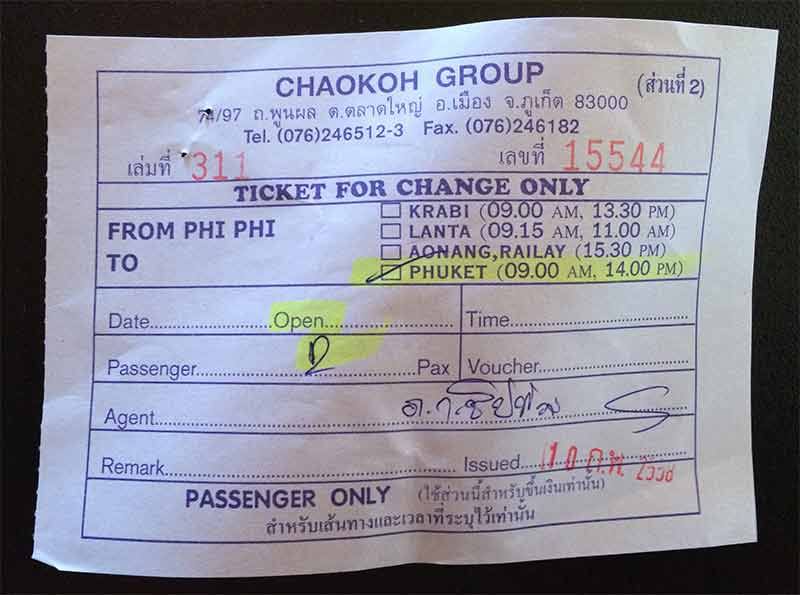 CHAOKOH GROUP (ส่วนที่ 2)
/97 ถ.พูนผล ต.ตลาดใหญ่ อ.เมือง จ.ภูเก็ต 83000
Tel. (076)246512-3 Fax. (076)246182
เล่มที่ 311 เลขที่ 15544
TICKET FOR CHANGE ONLY
FROM PHI PHI
TO
KRABI (09.00 AM, 13.30 PM)
LANTA (09.15 AM, 11.00 AM)
AONANG,RAILAY (15.30 PM)
PHUKET (09.00 AM, 14.00 PM)
Date..........Open.......... Time..........
Passenger..........2..........Pax Voucher..........
Agent..........
Remark.......... Issued.....10 ก.พ. 2558
PASSENGER ONLY (ใช้ส่วนนี้สำหรับขึ้นเงินเท่านั้น)
สำหรับเส้นทางและเวลาที่ระบุไว้เท่านั้น